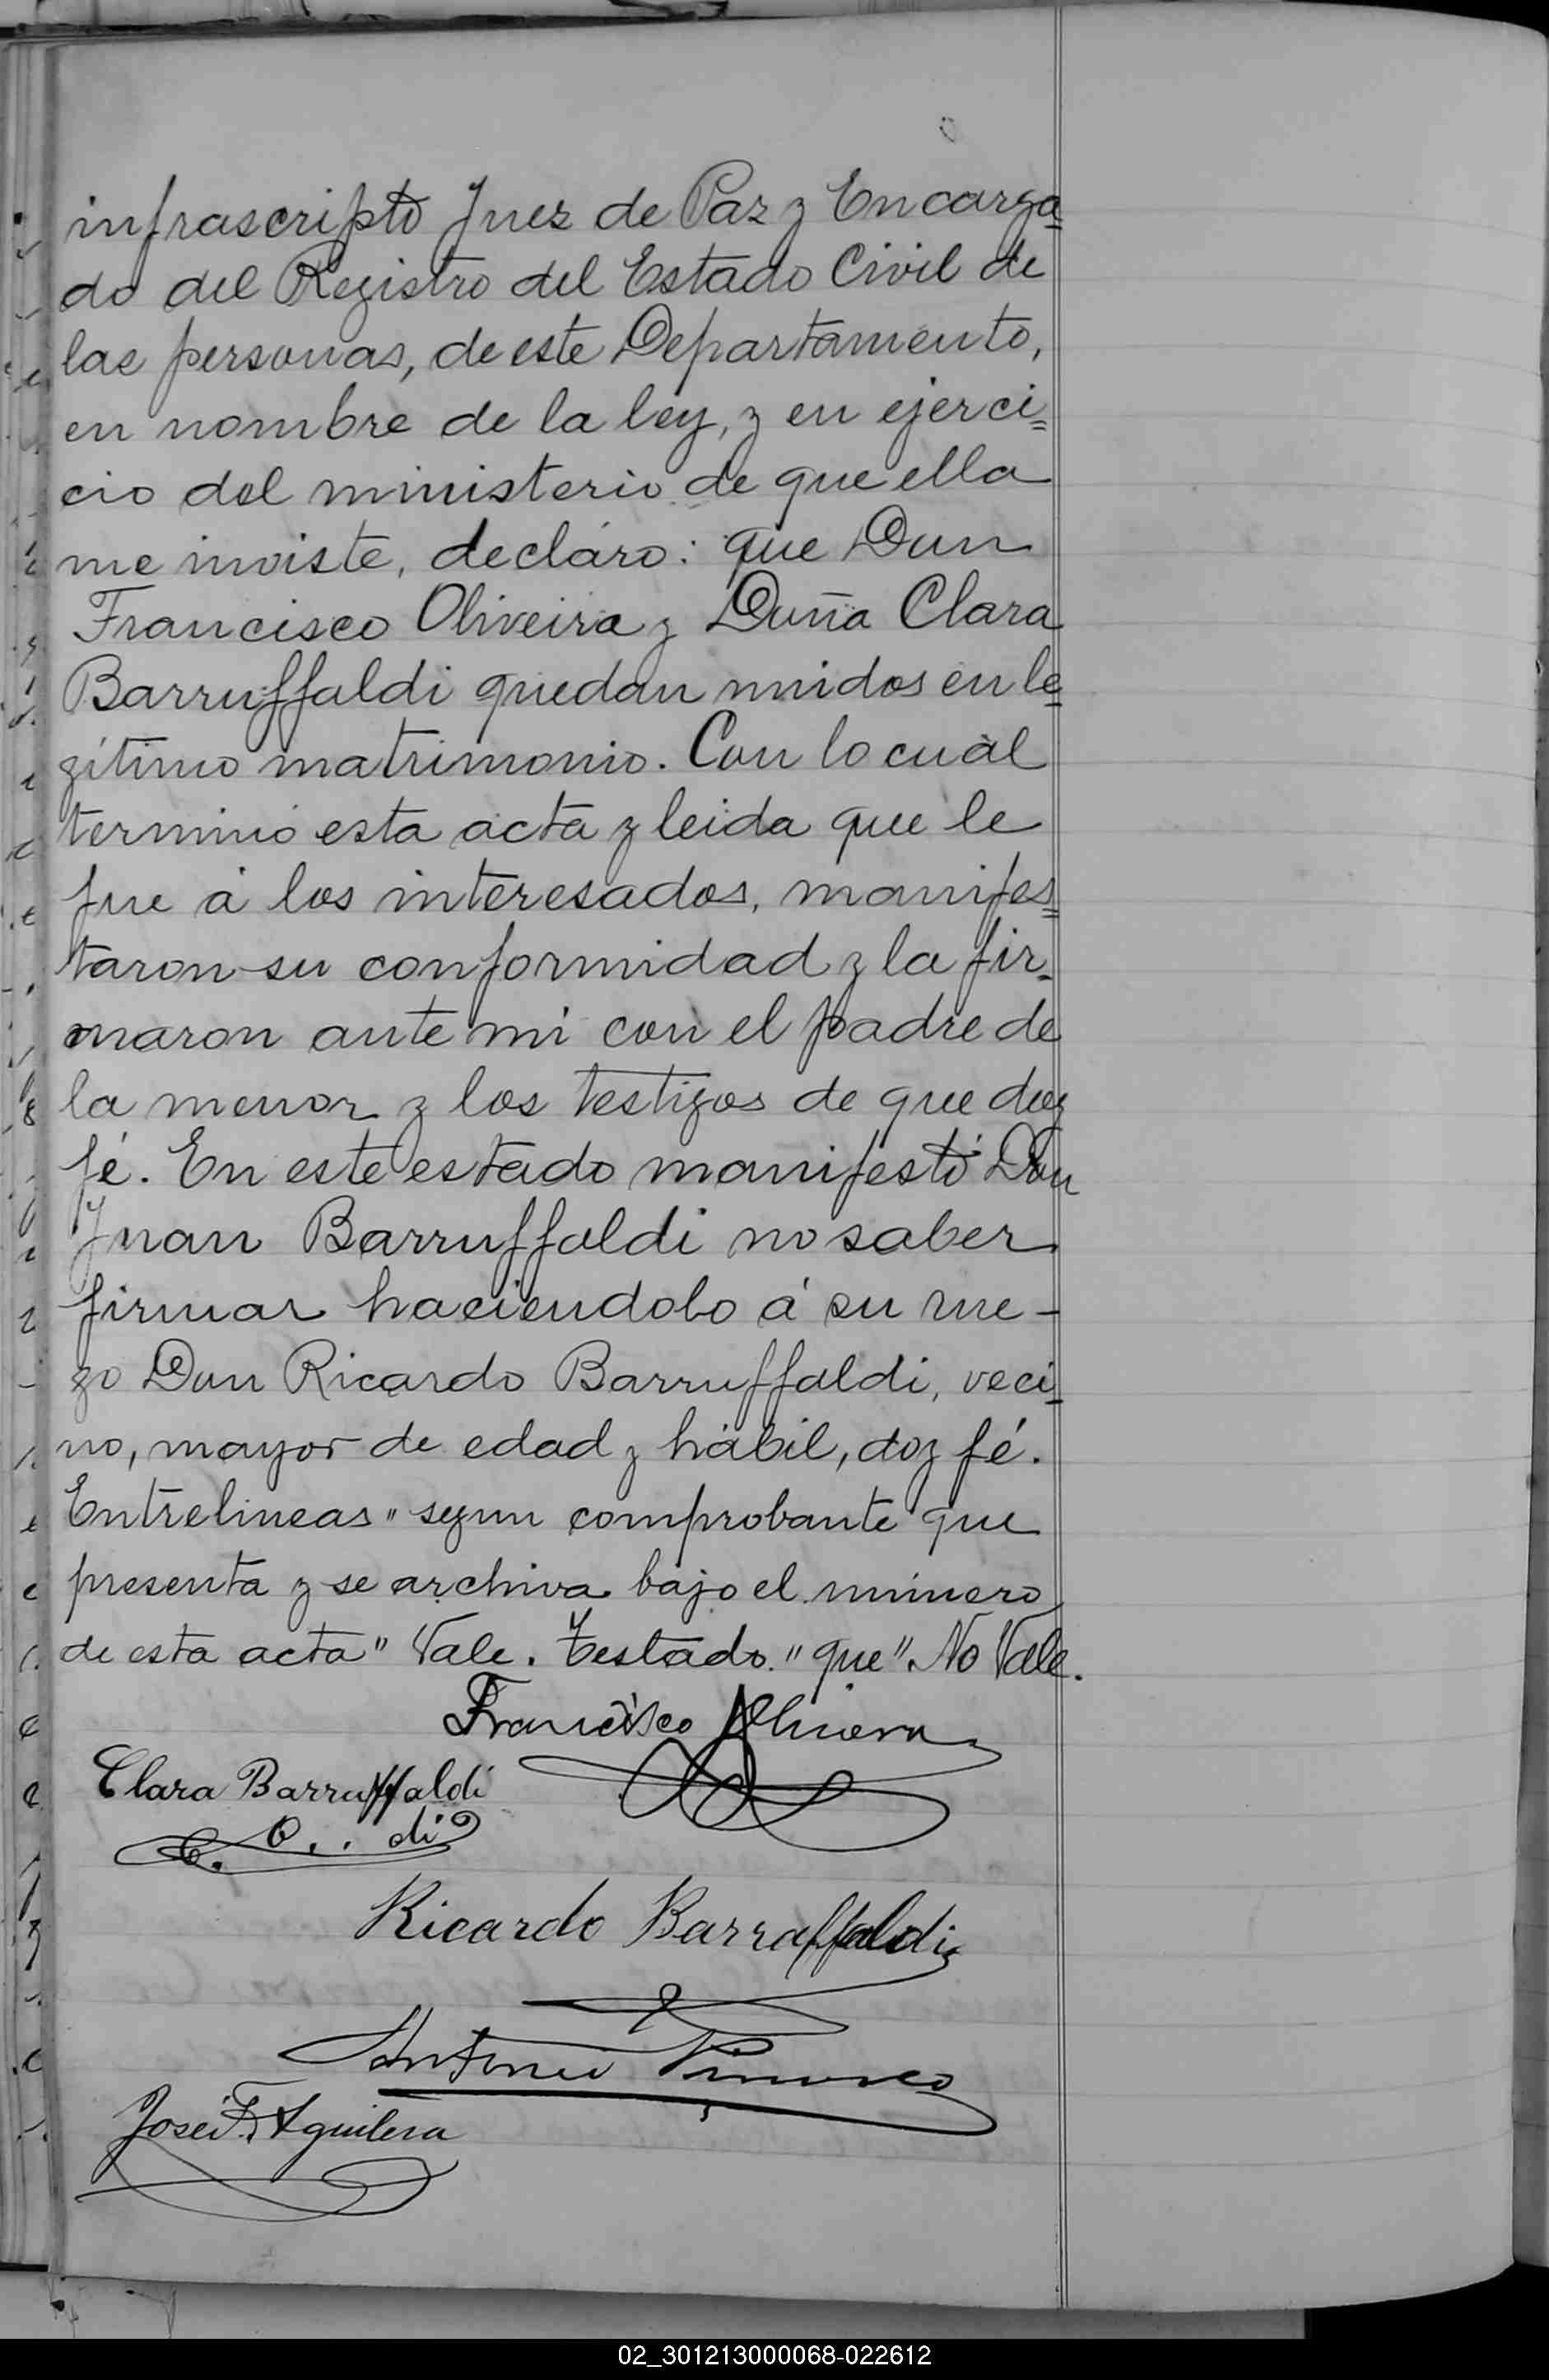 infrascripto Juez de Paz y Encarga
do del Registro del Estado Civil de
las personas, de este Departamento,
en nombre de la ley, y en ejerci=
cio del ministerio de que ella
me inviste, decláro: que Don
Francisco Oliveira y Doña Clara
Barruffaldi quedan unidos en le=
gítimo matrimonio. Con lo cual
terminó esta acta y leida que le
fue á los interesados, manifes=
taron su conformidad y la fir-
maron ante mi con el padre de
la menor y los testigos de que doy
fé. En este estado manifestó Don
Juan Barruffaldi no saber
firmar haciendolo á su rue-
go Don Ricardo Barruffaldi, veci-
no, mayor de edad y hábil, doy fé.
Entrelineas "segun comprobante que
presenta y se archiva bajo el número
de esta acta" Vale. Testado "que". No Vale.
Francisco Oliveira
Clara Barruffaldi
C. O. . . di
Ricardo Barruffaldi
Antonio
José F. Aguilera
02_301213000068-022612